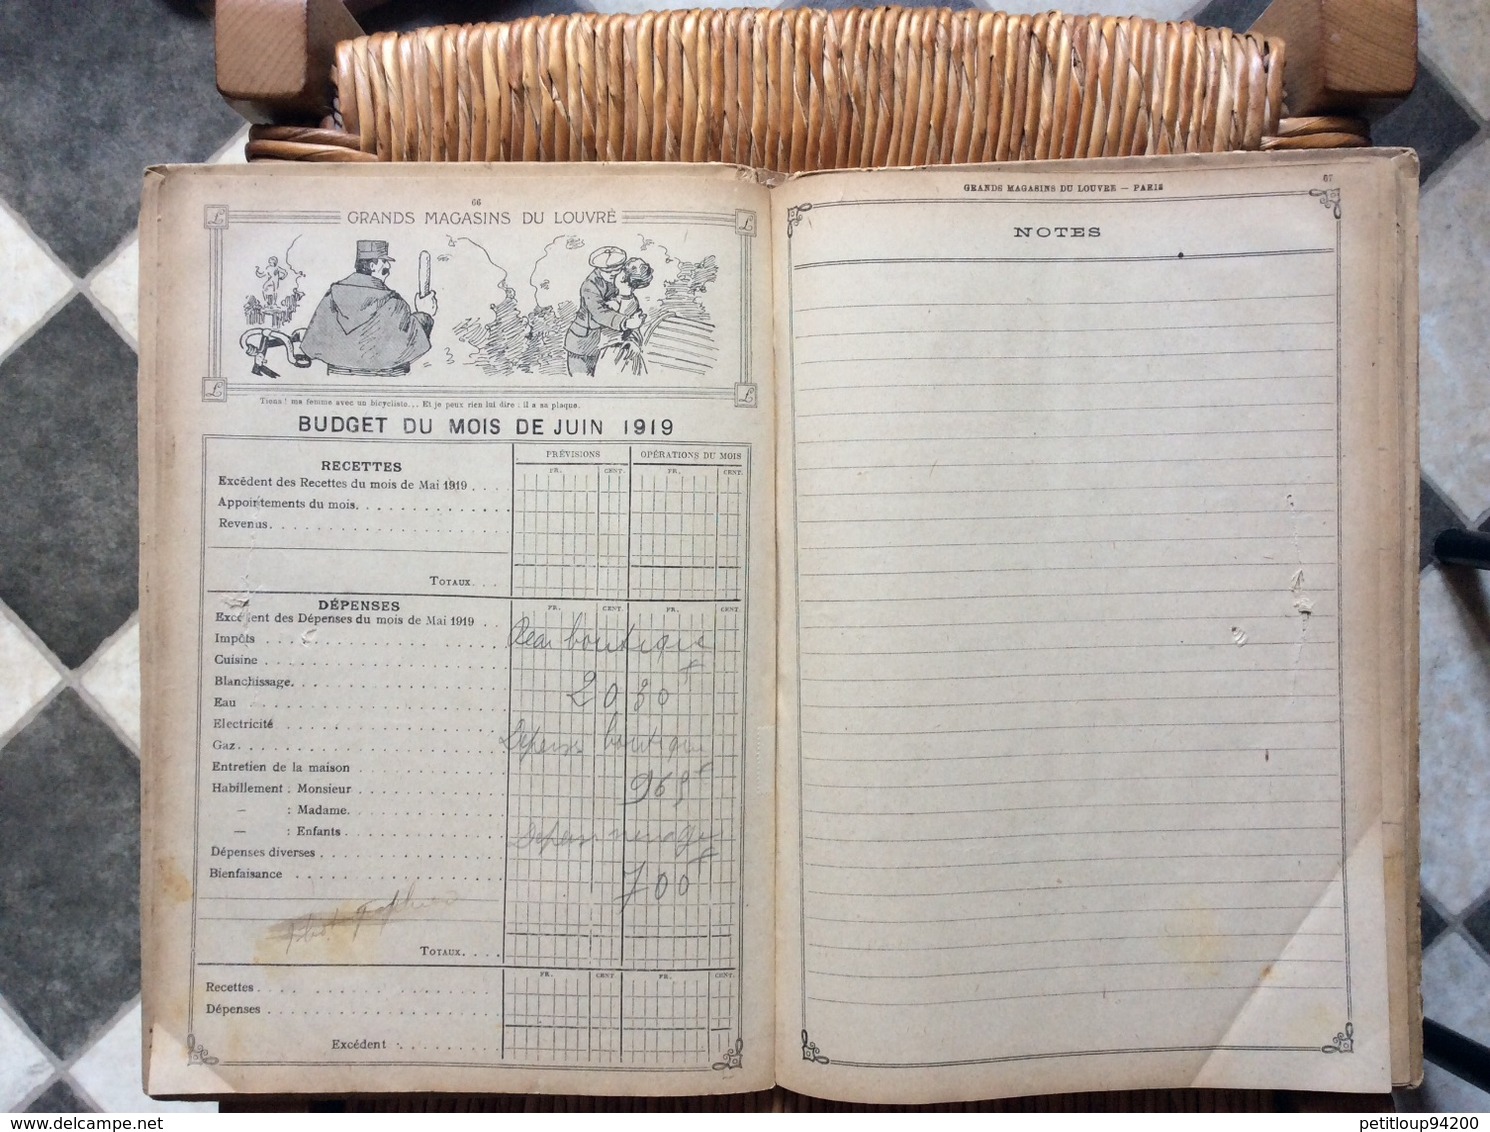 66
GRANDS MAGASINS DU LOUVRE
Tiens ! ma femme avec un bicycliste... Et je peux rien lui dire : il a sa plaque.
BUDGET DU MOIS DE JUIN 1919
PRÉVISIONS OPÉRATIONS DU MOIS
RECETTES FR. CENT. FR. CENT.
Excédent des Recettes du mois de Mai 1919
Appointements du mois
Revenus
TOTAUX
DÉPENSES FR. CENT. FR. CENT.
Excédent des Dépenses du mois de Mai 1919
Impôts boutique
Cuisine
Blanchissage
Eau
Electricité
Gaz Depense boutique
Entretien de la maison
Habillement : Monsieur 965 f
— : Madame
— : Enfants Depense menage
Dépenses diverses
Bienfaisance 700 f
TOTAUX
FR. CENT. FR. CENT.
Recettes
Dépenses
Excédent
GRANDS MAGASINS DU LOUVRE — PARIS
67
NOTES
www.delcampe.net
petitloup94200